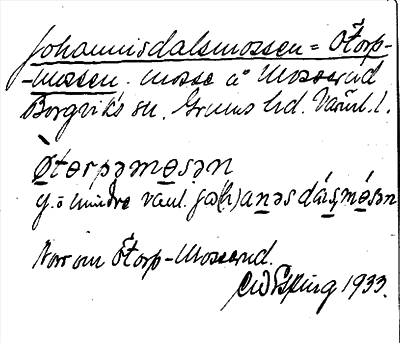 Johannisdalsmossen = Ötorp-
-mossen. mosse å Mosserud
Borgviks sn. Grums hd. Värml. l.
Ò̱tɵrpəmɵ̱sən
y. o mindre vanl. jə(h)anəsdálsmɵ́sən
Norr om Ötorp-Mosserud.
1933.